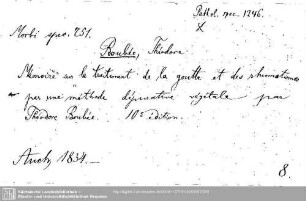 Pathol. spec. 1246.
X
Morbi spec. 251.
Boubée, Théodore
Mémoire sur le traitement de la goutte et des rhumatismes
par une méthode dépurative végétale par
Théodore Boubée. 10e édition.
Auch 1834.—
8.
Sächsische Landesbibliothek -
Staats- und Universitätsbibliothek Dresden